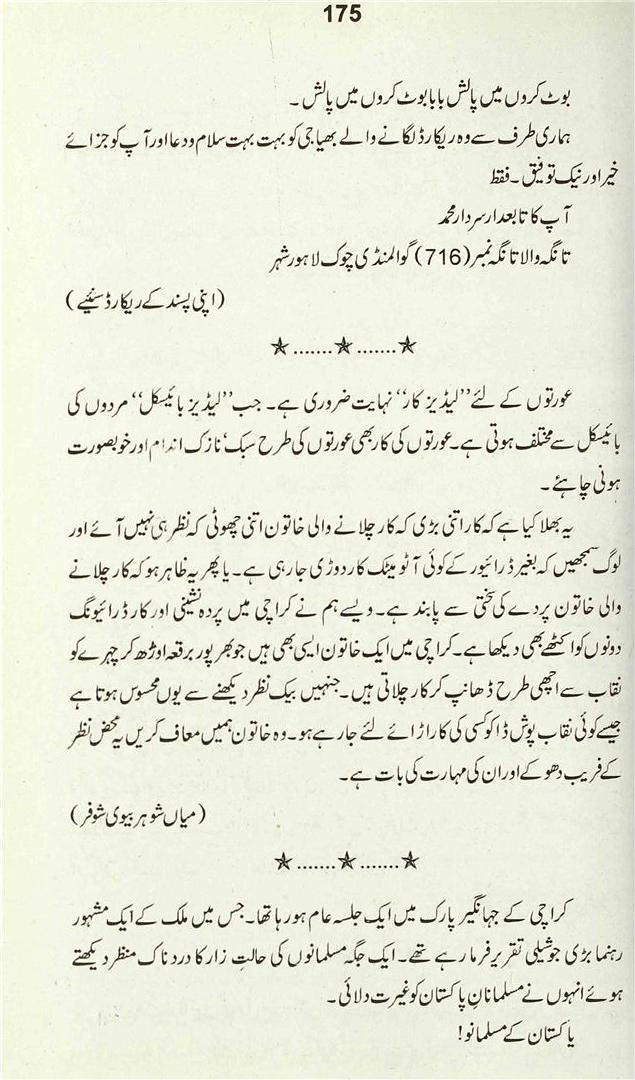 175
بوٹ کروں میں پالش بابا بوٹ کروں میں پالش ۔
ہماری طرف سے وہ ریکارڈ لگانے والے بھیا جی کو بہت بہت سلام و دعا اور آپ کو جزائے
خیر اور نیک توفیق ۔ فقط
آپ کا تابعدار سردار محمد
تانگہ والا تانگہ نمبر (716) گوالمنڈی چوک لاہور شہر
(اپنی پسند کے ریکارڈ سنئیے)
★.......★.......★
عورتوں کے لئے ’’لیڈیز کار‘‘ نہایت ضروری ہے۔ جب ’’لیڈیز بائیسکل‘‘ مردوں کی
بائیسکل سے مختلف ہوتی ہے۔ عورتوں کی کار بھی عورتوں کی طرح سبک‘ نازک اندام اور خوبصورت
ہونی چاہئے ۔
یہ بھلا کیا ہے کہ کار اتنی بڑی کہ کار چلانے والی خاتون اتنی چھوٹی کہ نظر ہی نہیں آئے اور
لوگ سمجھیں کہ بغیر ڈرائیور کے کوئی آٹو میٹک کار دوڑی جا رہی ہے۔ یا پھر یہ ظاہر ہو کہ کار چلانے
والی خاتون پردے کی سختی سے پابند ہے۔ ویسے ہم نے کراچی میں پردہ نشینی اور کار ڈرائیونگ
دونوں کو اکٹھے بھی دیکھا ہے۔ کراچی میں ایک خاتون ایسی بھی ہیں جو بھرپور برقعہ اوڑھ کر چہرے کو
نقاب سے اچھی طرح ڈھانپ کر کار چلاتی ہیں۔ جنہیں بیک نظر دیکھنے سے یوں محسوس ہوتا ہے
جیسے کوئی نقاب پوش ڈاکو کسی کی کار اڑائے لئے جا رہے ہو۔ وہ خاتون ہمیں معاف کریں یہ محض نظر
کے فریب دھوکے اور ان کی مہارت کی بات ہے۔
(میاں شوہر بیوی شوفر)
★.......★.......★
کراچی کے جہانگیر پارک میں ایک جلسہ عام ہو رہا تھا۔ جس میں ملک کے ایک مشہور
رہنما بڑی جوشیلی تقریر فرما رہے تھے۔ ایک جگہ مسلمانوں کی حالتِ زار کا دردناک منظر دیکھتے
ہوئے انہوں نے مسلمانانِ پاکستان کو غیرت دلائی۔
پاکستان کے مسلمانو!